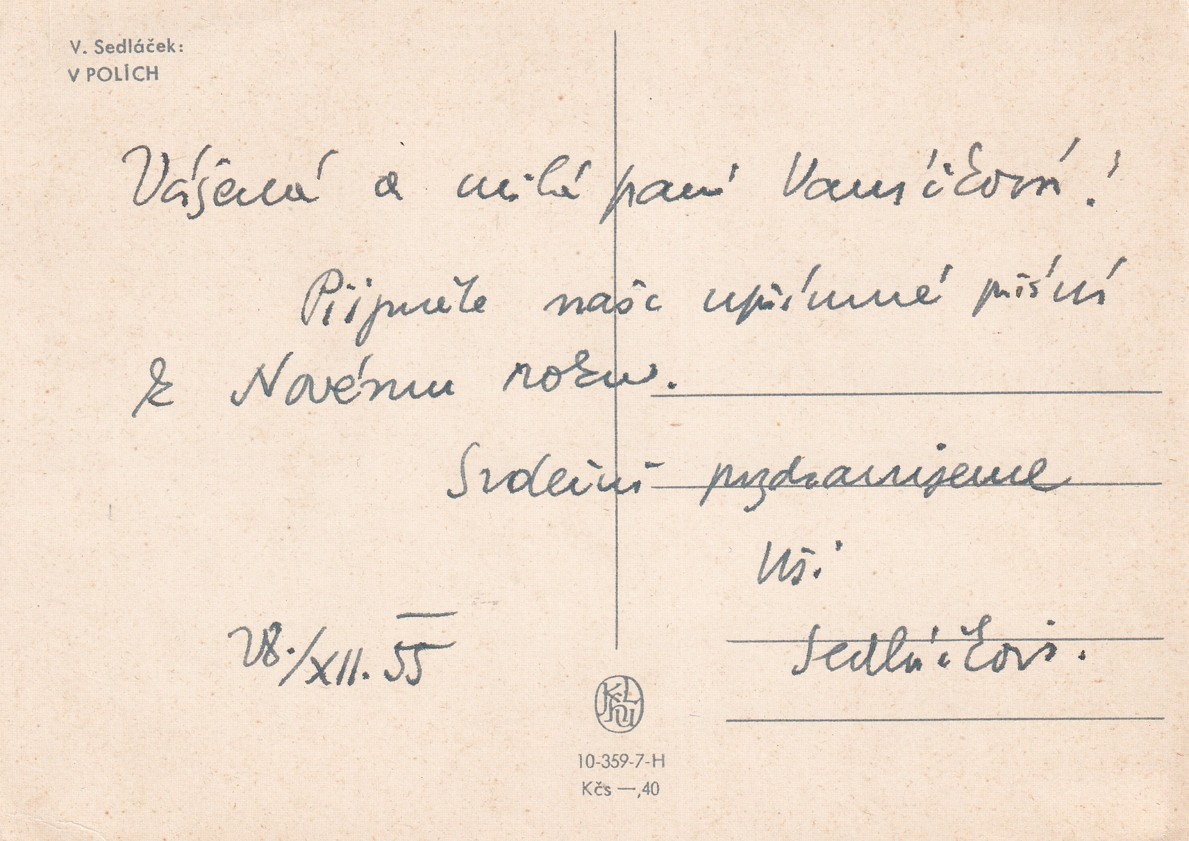 V. Sedláček:
V POLÍCH
Vážená a milá paní Vaníčková!
Přijměte naše upřímné přání
k Novému roku.
Srdečně pozdravujeme
Vši
Sedláčkovi.
28./XII. 55
10-359-7-H
Kčs —,40